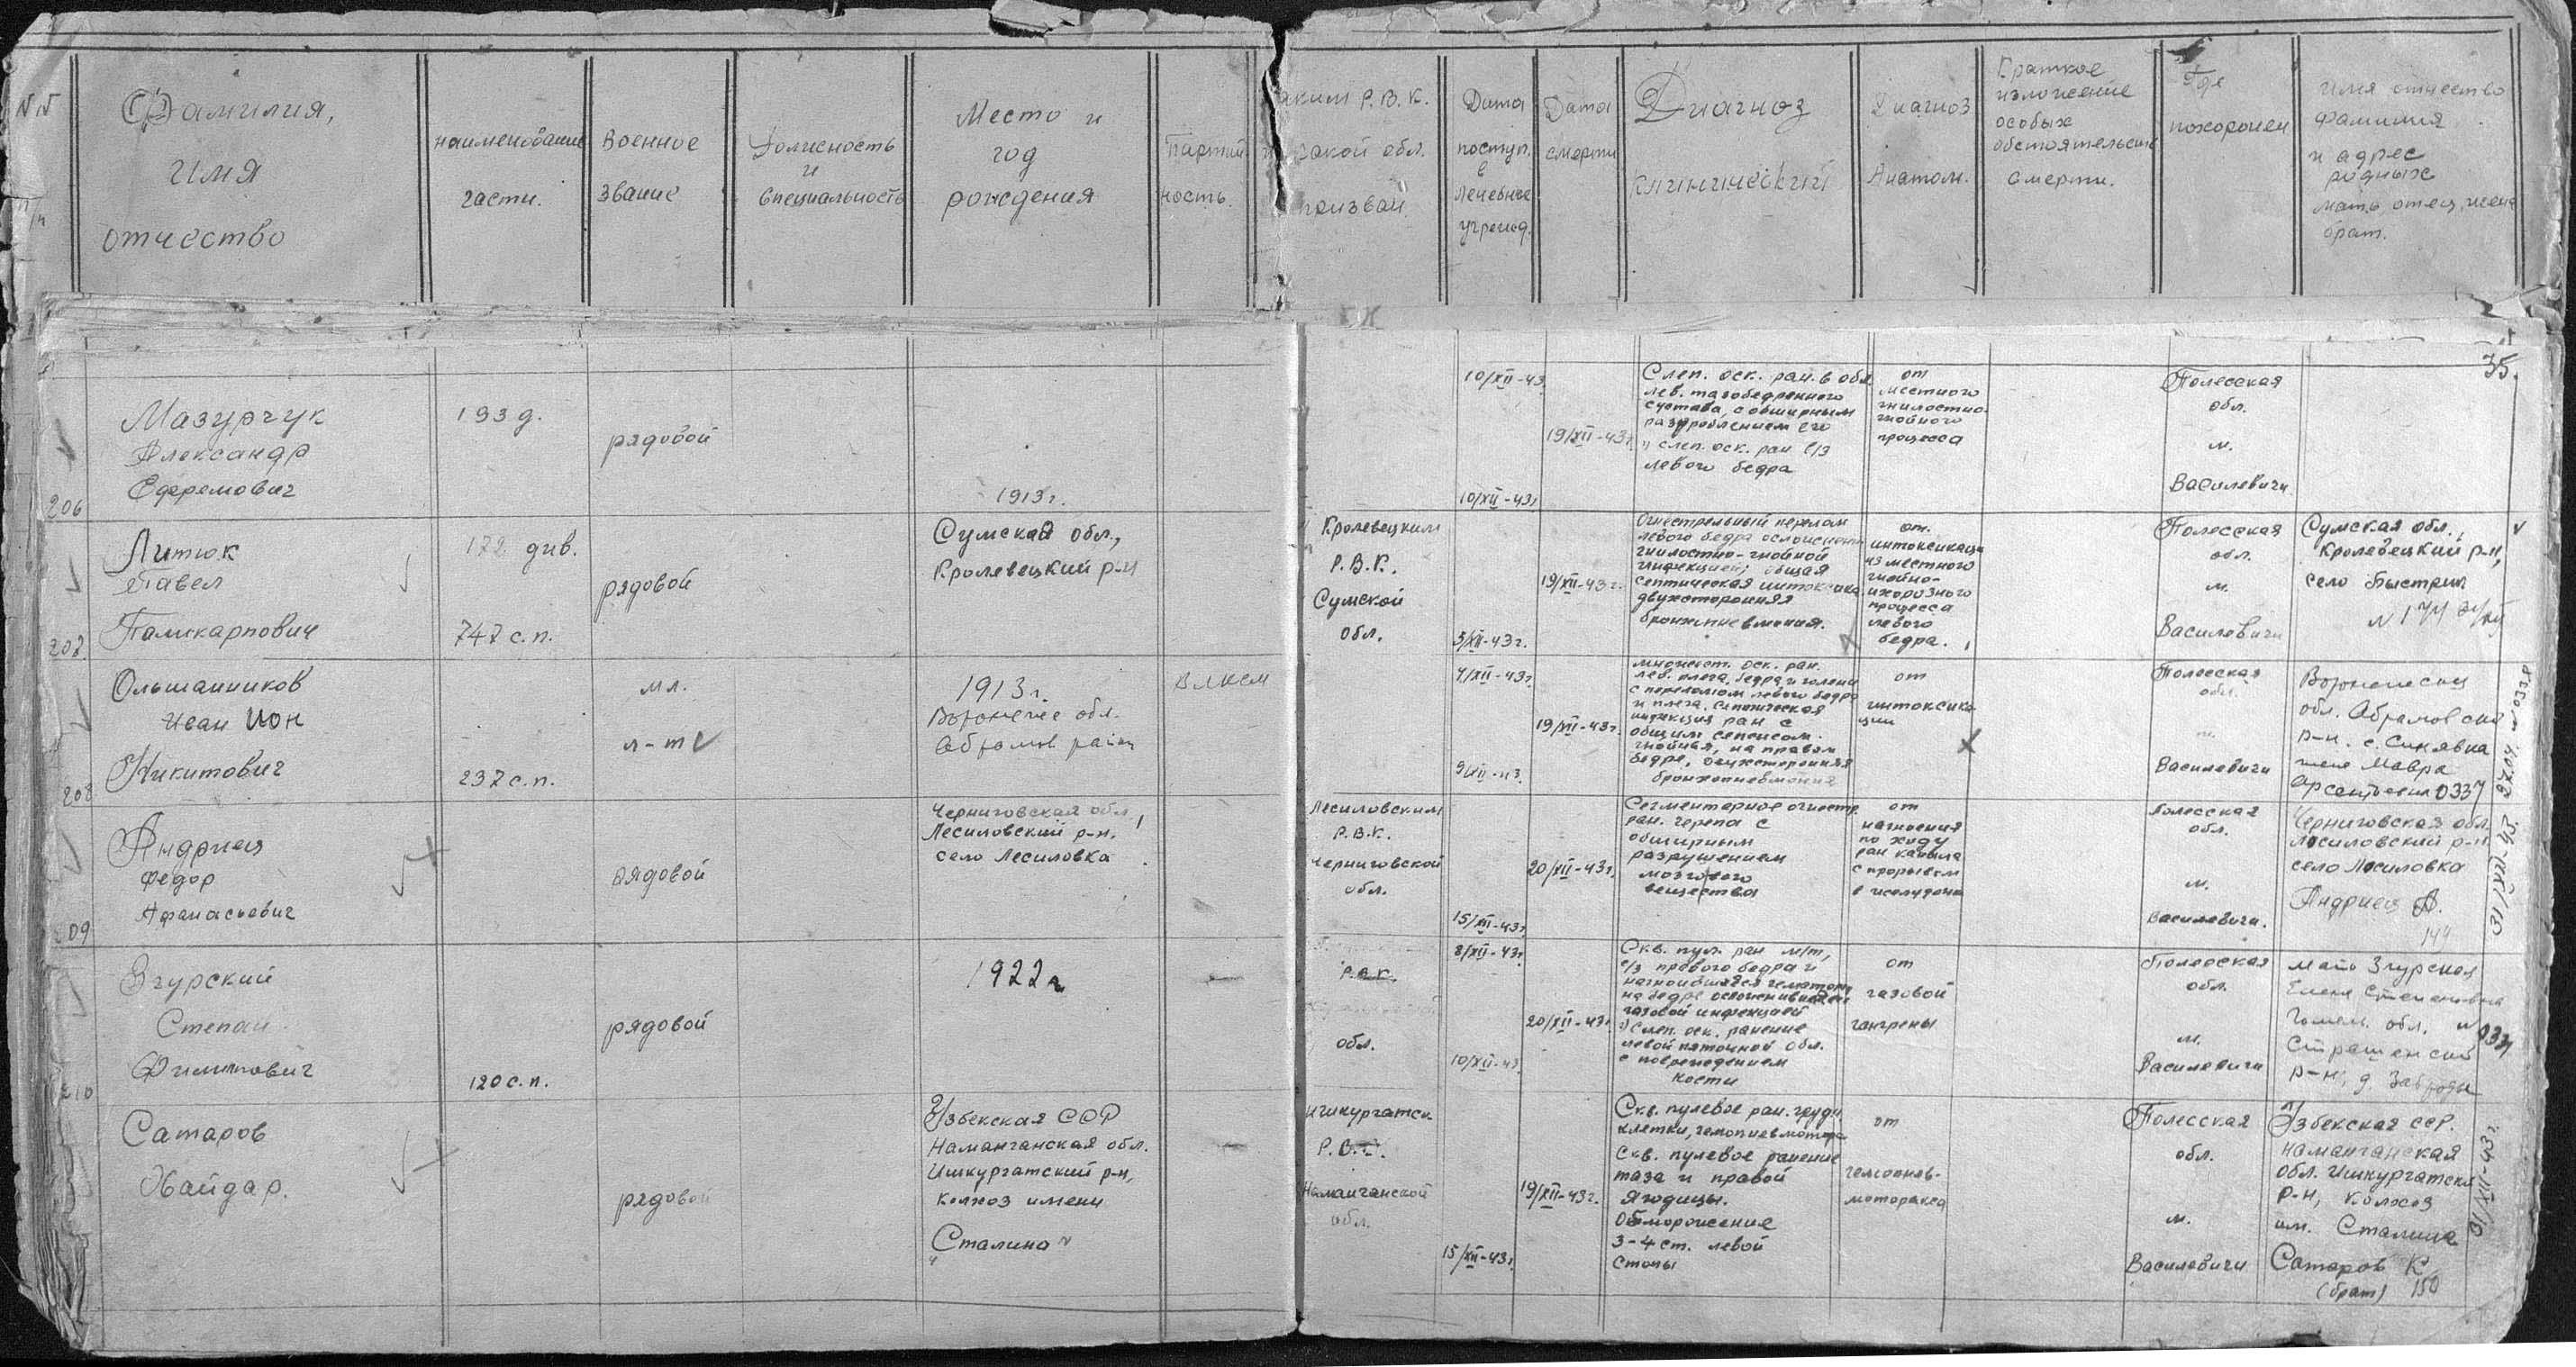 NN
п/п
Фамилия,
имя
отчество
наименование
части.
Военное
звание
Должность
и
специальность
Место и
год
рождения
Партий
ность.
аким Р.В.К.
какой обл.
призван
Дата
поступ.
в
лечебное
учрежд.
Дата
смерти
Диагноз
клинический
Диагноз
Анатом.
Краткое
изложение
особых
обстоятельств
смерти.
Где
похоронен
имя отчество
фамилия
и адрес
родных
мать, отец, жена
брат.
35.
206
Мазурчук
Александр
Ефремович
193 д.
рядовой
1913 г.
10/XII-43
10/XII-43г
19/XII-43г.
Слеп. оск. ран. в обл.
лев. тазобедренного
сустава, с обширным
раздроблением его
слеп. оск. ран с/з
левого бедра
от
местного
гнилостно-
гнойного
процесса
Полесская
обл.
м.
Василевичи
207
Литюк
Павел
Поликарпович
172 див.
747 с.п.
рядовой
Сумская обл.,
Кролевецкий р-н
Кролевецким
Р.В.К.
Сумской
обл.
5/XII-43г.
19/XII-43г.
Огнестрельный перелом
левого бедра осложненн
гнилостно-гнойной
инфекцией; общая
септическая интоксика
двухсторонняя
бронхпневмония.
от
интоксикаци
из местного
гнойно-
ихорозного
процесса
левого
бедра.
Полесская
обл.
м.
Василевичи
Сумская обл.,
Кролевецкий р-н,
село Быстрик
N 174
208
Ольшанников
Иван Ион
Никитович
237 с.п.
мл.
л-т
1913 г.
Воронеже обл.
Абрамов район
ВЛКСМ
4/XII-43г
9/XII-43.
19/XII-43г.
множест. оск. ран.
лев. плеча, бедра и голени
с переломом левого бедра
и плеча, септическая
инфекция ран с
общим сепсисом.
гнойная, на правом
бедре, двухсторонняя
бронхопневмония
от
интоксика
ции
Полесская
обл.
Василевичи
Воронежская
обл. Абрамовский
р-н. с. Синявка
жене Мавра
Арсентьевна 0337
209
Андриец
Федор
Афанасьевич
рядовой
Черниговская обл,
Лесиловский р-н.
село Лесиловка
Лесиловским
Р.В.К.
Черниговской
обл.
15/XII-43г
20/XII-43г.
Сегментарное огнестр.
ран. черепа с
обширным
разрушением
мозгового
вещества
от
нагноения
по ходу
ран канала
с прорывом
в желудочк
Полесская
обл.
м.
Василевичи.
Черниговская обл.
Лесиловский р-н.
село Лесиловка
Андриец А.
149
210
Згурский
Степан
Филиппович
120 с.п.
рядовой
1922 г
Р.В.К.
обл.
8/XII-43г
10/XII-43
20/XII-43г.
Скв. пул. ран м/т,
с/з правого бедра и
нагноившаяся гематома
на бедре осложнившаяся
газовой инфекцией
2) Слеп. оск. ранение
левой пяточной обл.
с повреждением
кости
от
газовой
гангрены
Полесская
обл.
м.
Василевичи
мать Згурская
Елена Степановна
Гомель. обл.
0337
р-н, д. Заброды
Сатаров
Хайдар.
рядовой
Узбекская ССР
Наманганская обл.
Ишкургатский р-н,
Колхоз имени
Сталина
Ишкургатск
Р.В.К.
Наманганской
обл.
15/XII-43г
19/XII-43г.
Скв. пулевое ран. груди.
клетки, гемопневмотора
Скв. пулевое ранение
таза и правой
ягодицы.
Обморожение
3-4 ст. левой
стопы
от
гемопнев-
моторакса
Полесская
обл.
м.
Василевичи
Узбекская ССР.
Наманганская
обл. Ишкургатский
р-н, колхоз
им. Сталина
Сатаров К
(брат) 150
31/XII-43. 27.04. N 0338
31/XII-43г.